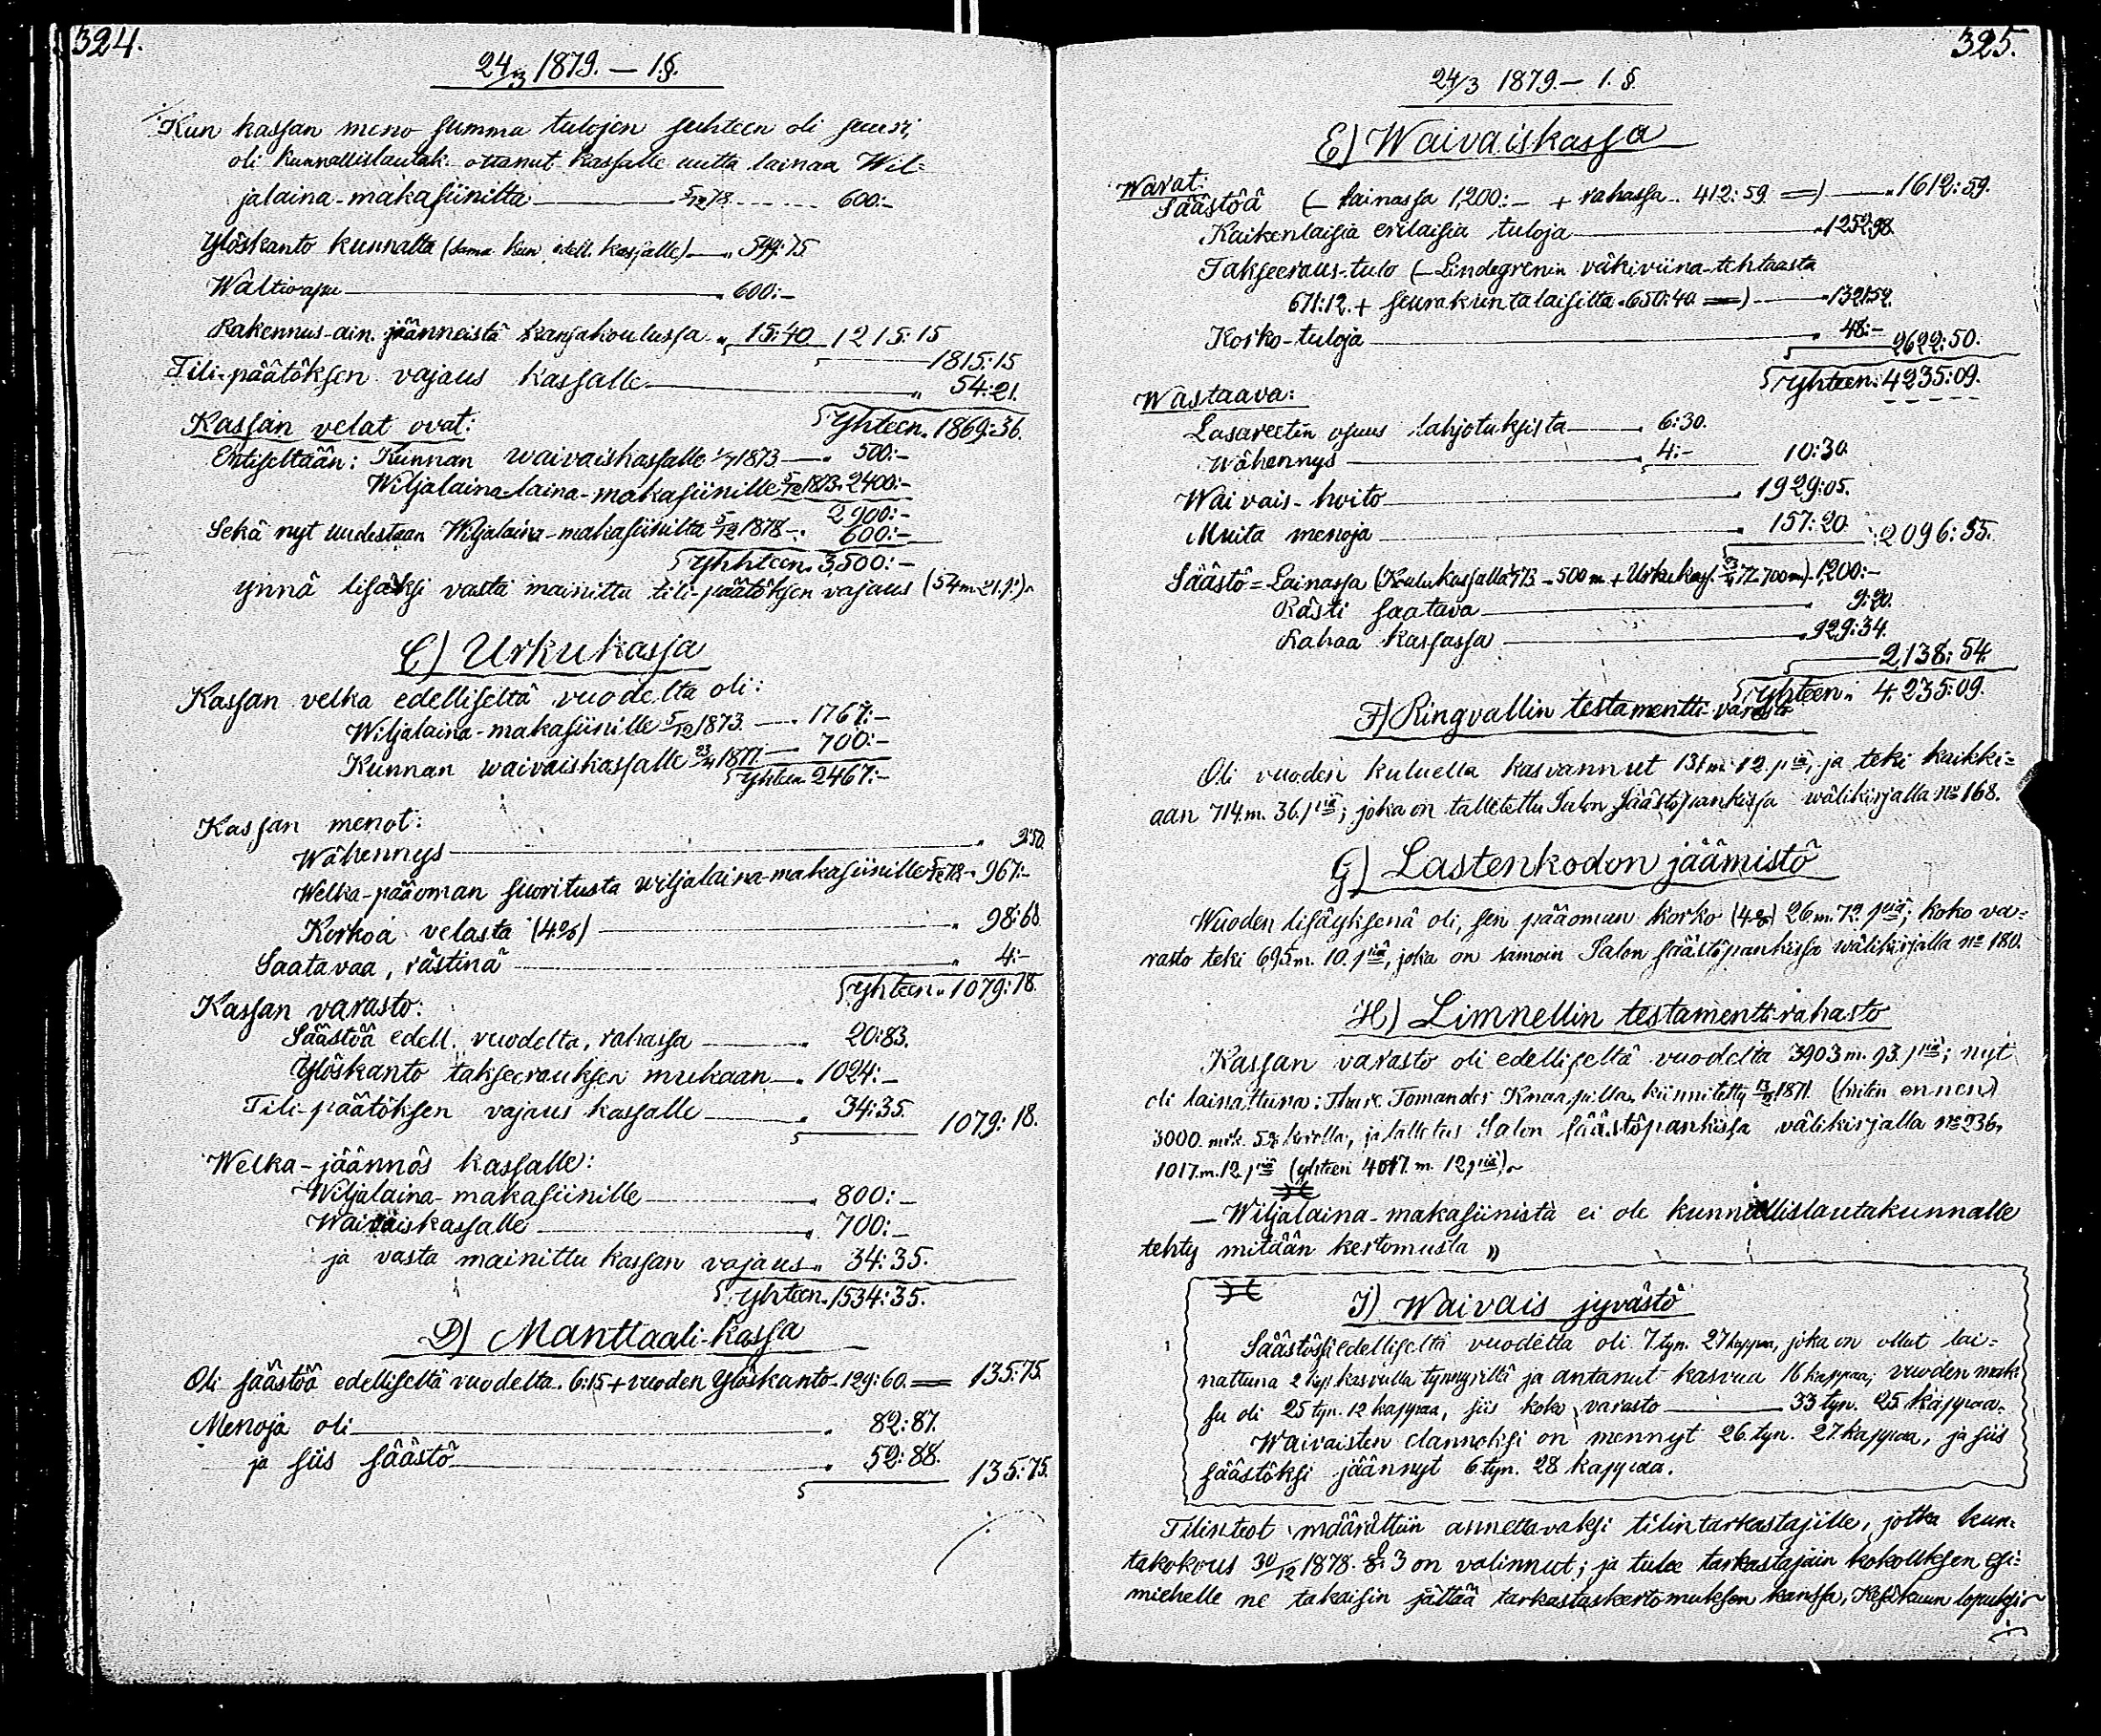 324.
24/3 1879. — 1.§.
Kun kassan meno summa tulojen suhteen oli suuri,
oli kunnallislautak. ottanut kassalle uutta lainaa Wil=
jalaina-makasiinilta — 5/12 78 — 600:—
Ylöskanto kunnalta (sama kun edell. kassalle) — „ 599:75
Waltioapu — „ 600:—
Rakennus-ain. jänneistä kansakoulussa „ 15:40 1215:15
1815:15
Tili-päätöksen vajaus kassalle — „ 54:21.
Yhteen. 1869:36.
Kassan velat ovat:
Entiseltään: Kunnan waivaiskassalle 1/7 1873 — „ 500:—
Wiljalaina-laina-makasiinille 5/12 1873 „ 2400:—
2900:—
Sekä nyt uudestaan Wiljalaina-makasiinilta 5/12 1878 — „ 600:—
Yhhteen. 3,500:—
ynnä lisäksi vasta mainittu tili-päätöksen vajaus (54 m 21 p:).
C) Urkukassa
Kassan velka edelliseltä vuodelta oli:
Wiljalaina-makasiinille 5/12 1873 — „ 1767:—
Kunnan waivaiskassalle 23/4 1877 — 700:—
Yhteen 2467:—
Kassan menot:
Wähennys — „ 9:50.
Welka-pääoman suoritusta wiljalaina-makasiinille 5/12 78 „ 967:—
Korkoa velasta (4%) — „ 98:68
Saatavaa, rästinä — „ 4:—
Yhteen „ 1079:18.
Kassan varasto:
Säästöä edell. vuodelta, rahassa — „ 20:83.
Ylöskanto takseerauksen mukaan — „ 1024:—
Tili-päätöksen vajaus kassalle — „ 34:35. 1079:18.
Welka-jäännös kassalle:
Wiljalaina-makasiinille — „ 800:—
Waivaiskassalle — „ 700:—
ja vasta mainittu kassan vajaus „ 34:35.
Yhteen. 1534:35.
D) Manttaali-kassa
Oli säästöä edelliseltä vuodelta. 6:15 + vuoden Ylöskanto. 129:60. = 135:75.
Menoja oli — „ 82:87.
ja siis säästö — „ 52:88. 135:75.
325.
24/3 1879 — 1.§.
E) Waivaiskassa
Warat:
Säästöä (— lainassa 1,200:— + rahassa 412:59 =) — „ 1612:59.
Kaikenlaisia erilaisia tuloja — „ 1252:98
Takseeraus-tulo (— Lindegrenin väkiviina-tehtaasta
671:12. + seurakuntalaisilta 650:40 =) — „ 1321:52.
Korko-tuloja — „ 48:— 2622:50.
Yhteen: 4235:09.
Wastaava:
Lasareetin osuus lahjotuksista — „ 6:30.
Wähennys — „ 4:— 10:30.
Waivais-hoito — „ 1929:05.
Muita menoja — „ 157:20. 2096:55.
Säästö = Lainassa (Koulukassalla 1/7 73 – 500 m. + Urkukass. 23/4 77 – 700 m) – 1,200:—
Rästi saatava — 9:20.
Rahaa kassassa — „ 929:34.
2138:54.
Yhteen „ 4.235:09.
F) Ringvallin testamentti-varasto
Oli vuoden kuluella kasvannut 131 m. 12. p:iä, ja teki kaikki=
aan 714. m. 36. p:iä; joka on talletettu Salon Säästöpankissa wälikirjalla no 168.
G) Lastenkodon jäämistö
Wuoden lisäyksenä oli, sen pääoman korko (4%) 26 m. 72. p:iä; koko va=
rasto teki 695 m. 10. p:iä, joka on samoin Salon säästöpankissa wälikirjalla no 180.
H) Limnellin testamentti-rahasto
Kassan varasto oli edelliseltä vuodelta 3903 m. 93. p:iä; nyt
oli lainattuna: Thure Tomander Knaapilla, kiinnitetty 13/2 1871. (kuten ennen)
3000. mrk. 5% korolla, ja talletus Salon säästöpankissa välikirjalla no 236,
1017. m. 12. p:iä (yhteen 4017. m. 12. p:iä).
— Wiljalaina-makasiinista ei ole kunnallislautakunnalle
tehty mitään kertomusta „
I) Waivais jyvästö
Säästössä edelliseltä vuodelta oli 7. tyn. 27 kappaa, joka on ollut lai=
nattuna 2 kap. kasvulla tynnyriltä ja antanut kasvua 16 kappaa; vuoden mak=
su oli 25 tyn. 12 kappaa, siis koko varasto — 33 tyn. 25 kappaa.
Waivaisten elannoksi on mennyt 26. tyn. 27. kappaa, ja siis
säästöksi jäännyt 6 tyn. 28 kappaa.
Tilinteot määrättiin annettavaksi tilintarkastajille, jotka kun=
takokous 30/12 1878. §. 3 on valinnut; ja tulee tarkastajain kokouksen esi=
miehelle ne takaisin jättää tarkastuskertomuksen kanssa, Kesäkuun lopuksi